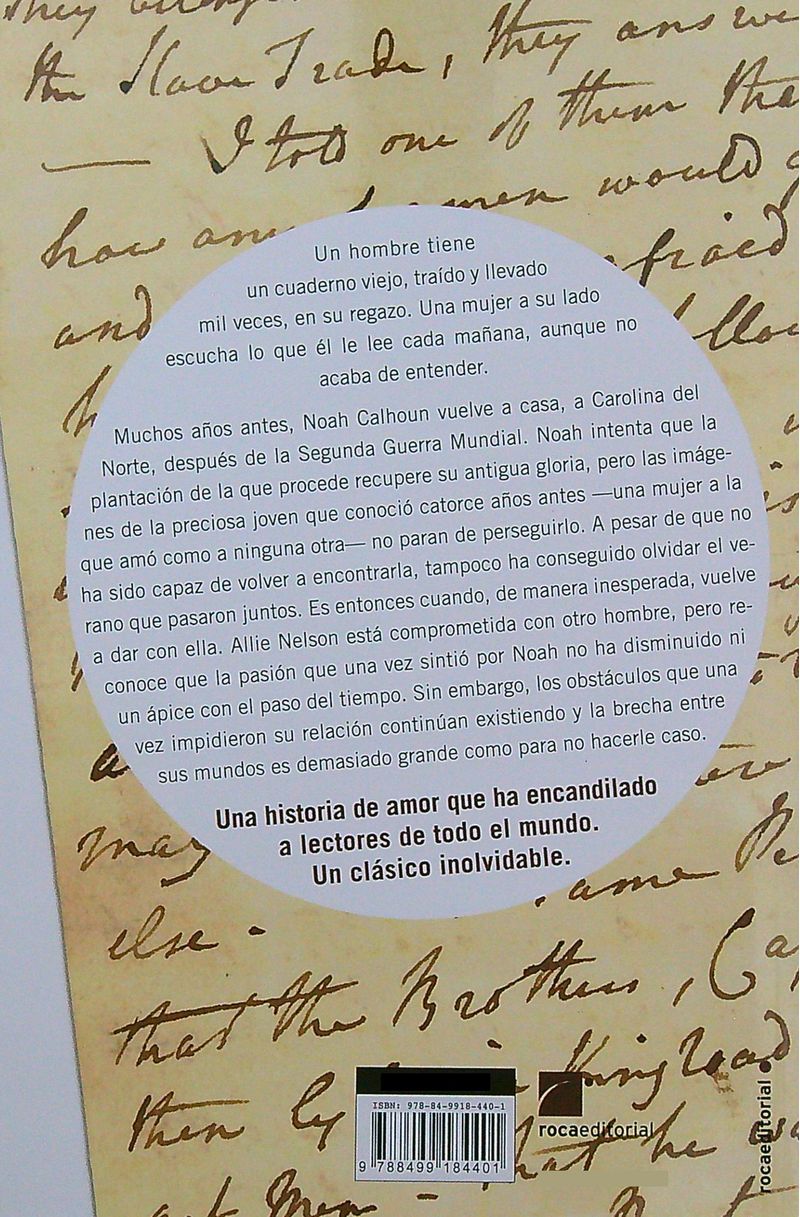 the Slave Trade, they answe
— I told one of them tha
how any men would g
and afraid
Un hombre tiene
un cuaderno viejo, traído y llevado
mil veces, en su regazo. Una mujer a su lado
escucha lo que él le lee cada mañana, aunque no
acaba de entender.
Muchos años antes, Noah Calhoun vuelve a casa, a Carolina del
Norte, después de la Segunda Guerra Mundial. Noah intenta que la
plantación de la que procede recupere su antigua gloria, pero las imáge-
nes de la preciosa joven que conoció catorce años antes —una mujer a la
que amó como a ninguna otra— no paran de perseguirlo. A pesar de que no
ha sido capaz de volver a encontrarla, tampoco ha conseguido olvidar el ve-
rano que pasaron juntos. Es entonces cuando, de manera inesperada, vuelve
a dar con ella. Allie Nelson está comprometida con otro hombre, pero re-
conoce que la pasión que una vez sintió por Noah no ha disminuido ni
un ápice con el paso del tiempo. Sin embargo, los obstáculos que una
vez impidieron su relación continúan existiendo y la brecha entre
sus mundos es demasiado grande como para no hacerle caso.
Una historia de amor que ha encandilado
a lectores de todo el mundo.
Un clásico inolvidable.
may
else.
that the Brothers, Ca
then by Kingroad
that he wa
ISBN: 978-84-9918-440-1
9 788499 184401
rocaeditorial
rocaeditorial